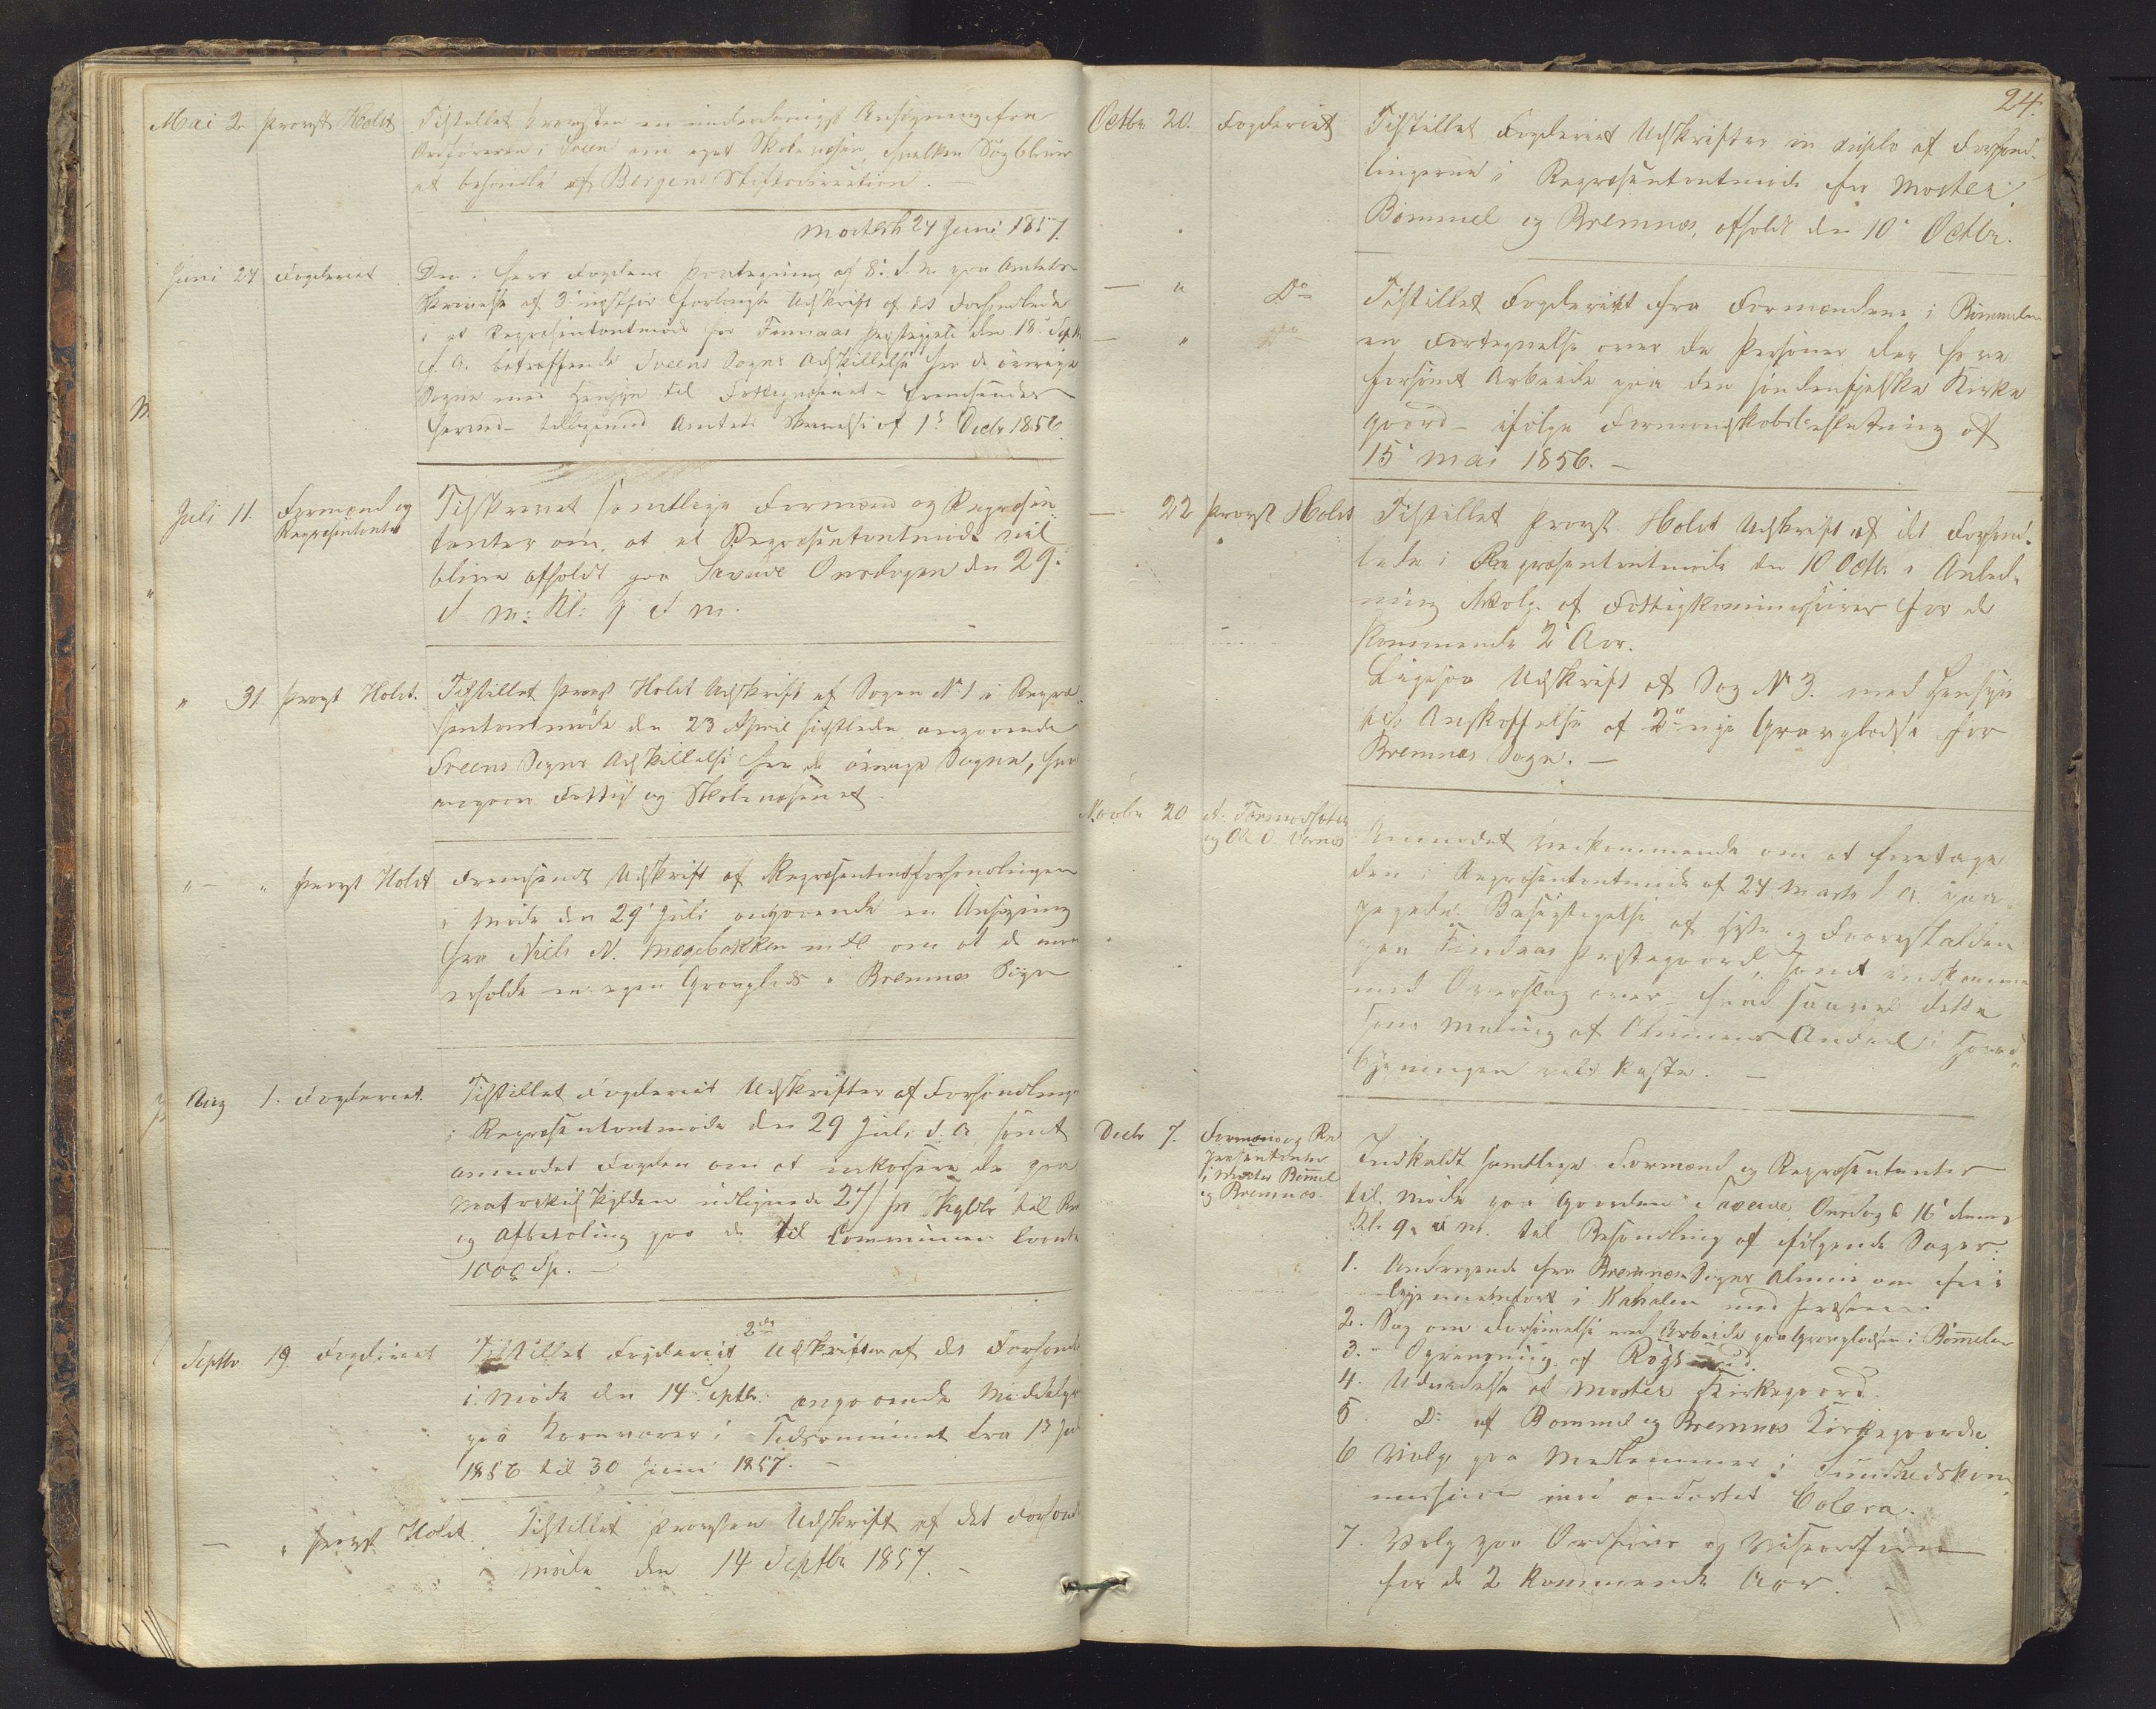 Mai 2. Provst Holst Tilstillet Provsten en underdanigst Ansøgning fra
Ordføreren i Sveen om eget Skolevæsen, hvilken Sag bliver
at behandle af Bergens Stiftsdirection.
Moster 24 Juni 1857.
Juni 24 Fogderiet Den i Herr Fogdens Paategning af 8de d. M. paa Amtets
Skrivelse af 3de næstfør forlangte Udskrift af det Forhandlede
i et Repræsentantmøde for Finnaas Præstegjeld den 18de Septb
f. A. betræffende Sveens Sogns Adskillelse fra de øvrige
Sogne med Hensyn til Fattigvæsenet fremsendes
herved tilligemed Amtets Skrivelse af 1ste Decbr 1856.
Juli 11. Formænd og
Repræsentanter
Tilskrevet samtlige Formænd og Repræsen-
tanter om, at et Repræsentantmøde vil
blive afholdt paa Særvive Onsdagen den 29de
d. M. Kl: 9 F. M.
" 31 Provst Holst. Tilstillet Provst Holst Udskrift af Sagen No 1 i Repræ-
sentantmøde den 23 April sidstleden angaaende
Sveens Sogns Adskillelse fra de øvrige Sogne, hvad
angaar Fattig og Skolevæsenet
" - " Provst Holst Fremsendt Udskrift af Repræsentantforhandlingen
i Møde den 29de Juli angaaende en Ansøgning
fra Niels N. Mægebakken m. fl. om at de maa
erholde en egen Gravplads i Bremnes Sogn
Aug 1. Fogderiet. Tilstillet Fogderiet Udskrifter af Forhandlinger
i Repræsentantmøde den 29 Juli d. A. samt
anmodet Fogden om at inkassere de paa
Matrikulskylden udlignede 27 ß pr Skyldlr til Renter
og Afbetaling paa de til Communen laante
1000 Sp.
Septbr 19 Fogderiet Tilstillet Fogderiet 2de Udskrifter af det Forhandlede
i Møde den 14 Septbr. angaaende Middelpriis
paa Kornvarer i Tidsrummet fra 1ste Juli
1856 til 30 Juni 1857.
— " Provst Holst. Tilstillet Provsten Udskrift af det Forhandlede
i Møde den 14 Septbr 1857.
24.
Octbr. 20. Fogderiet Tilstillet Fogderiet Udskrifter in duplo af Forhand-
lingerne i Repræsentantmøde for Moster,
Bømmel og Bremnes, afholdt den 10de Octbr.
— " Do Tilstillet Fogderiet fra Formændene i Bømmelen
— " Do en Fortegnelse over de Personer der have
forsømt Arbeide paa den søndenfjelske Kirke
gaard ifølge Formandskabsbeslutning af
15de Mai 1856.
— 22 Provst Holst Tilstillet Provst Holst Udskrift af det Forhand-
lede i Repræsentantmøde den 10 Octbr i Anled-
ning Valg af Fattigkommissairer for de
kommende 2de Aar.
Ligesaa Udskrift af Sag No 3. med Hensyn
til Anskaffelse af 2de nye Gravpladse for
Bremnes Sogn.
Novbr 20 og O. O. Vernes Anmodet Vedkommende om at foretage
den i Repræsentantmøde af 24 Marts d. A. paa-
pegede Besigtigelse af Fjøs og Faarestalden
paa Finnaas Præstegaard, samt indkomme
med Overslag over hvad saavel dette
som Maling af Almuens Andeel i Hoved-
bygningen vil koste.
Decbr 7. Formænd og Re
præsentanter
i Moster Bømmel
og Bremnes.
Indkaldt samtlige Formænd og Repræsentanter
til Møde paa Gaarden Særvive Onsdag d 16de dennes
Kl. 9 F. M. til Behandling af følgende Sager:
1. Andragende fra Bremnes Sogns Almue om fri
i Kanalen med
2. Sag om Forsømmelse med Arbeide paa Gravpladsen i Bømmelen
3. Oprensning af Røgs
4. Udvidelse af Moster Kirkegaard.
5. Do af Bømmel og Bremnes Kirkegaarde.
6 Valg paa Medlemmer i Sundhedskom-
missionen mod andartet Colera.
7. Valg paa Ordfører og Viseordfører
for de 2 kommende Aar.